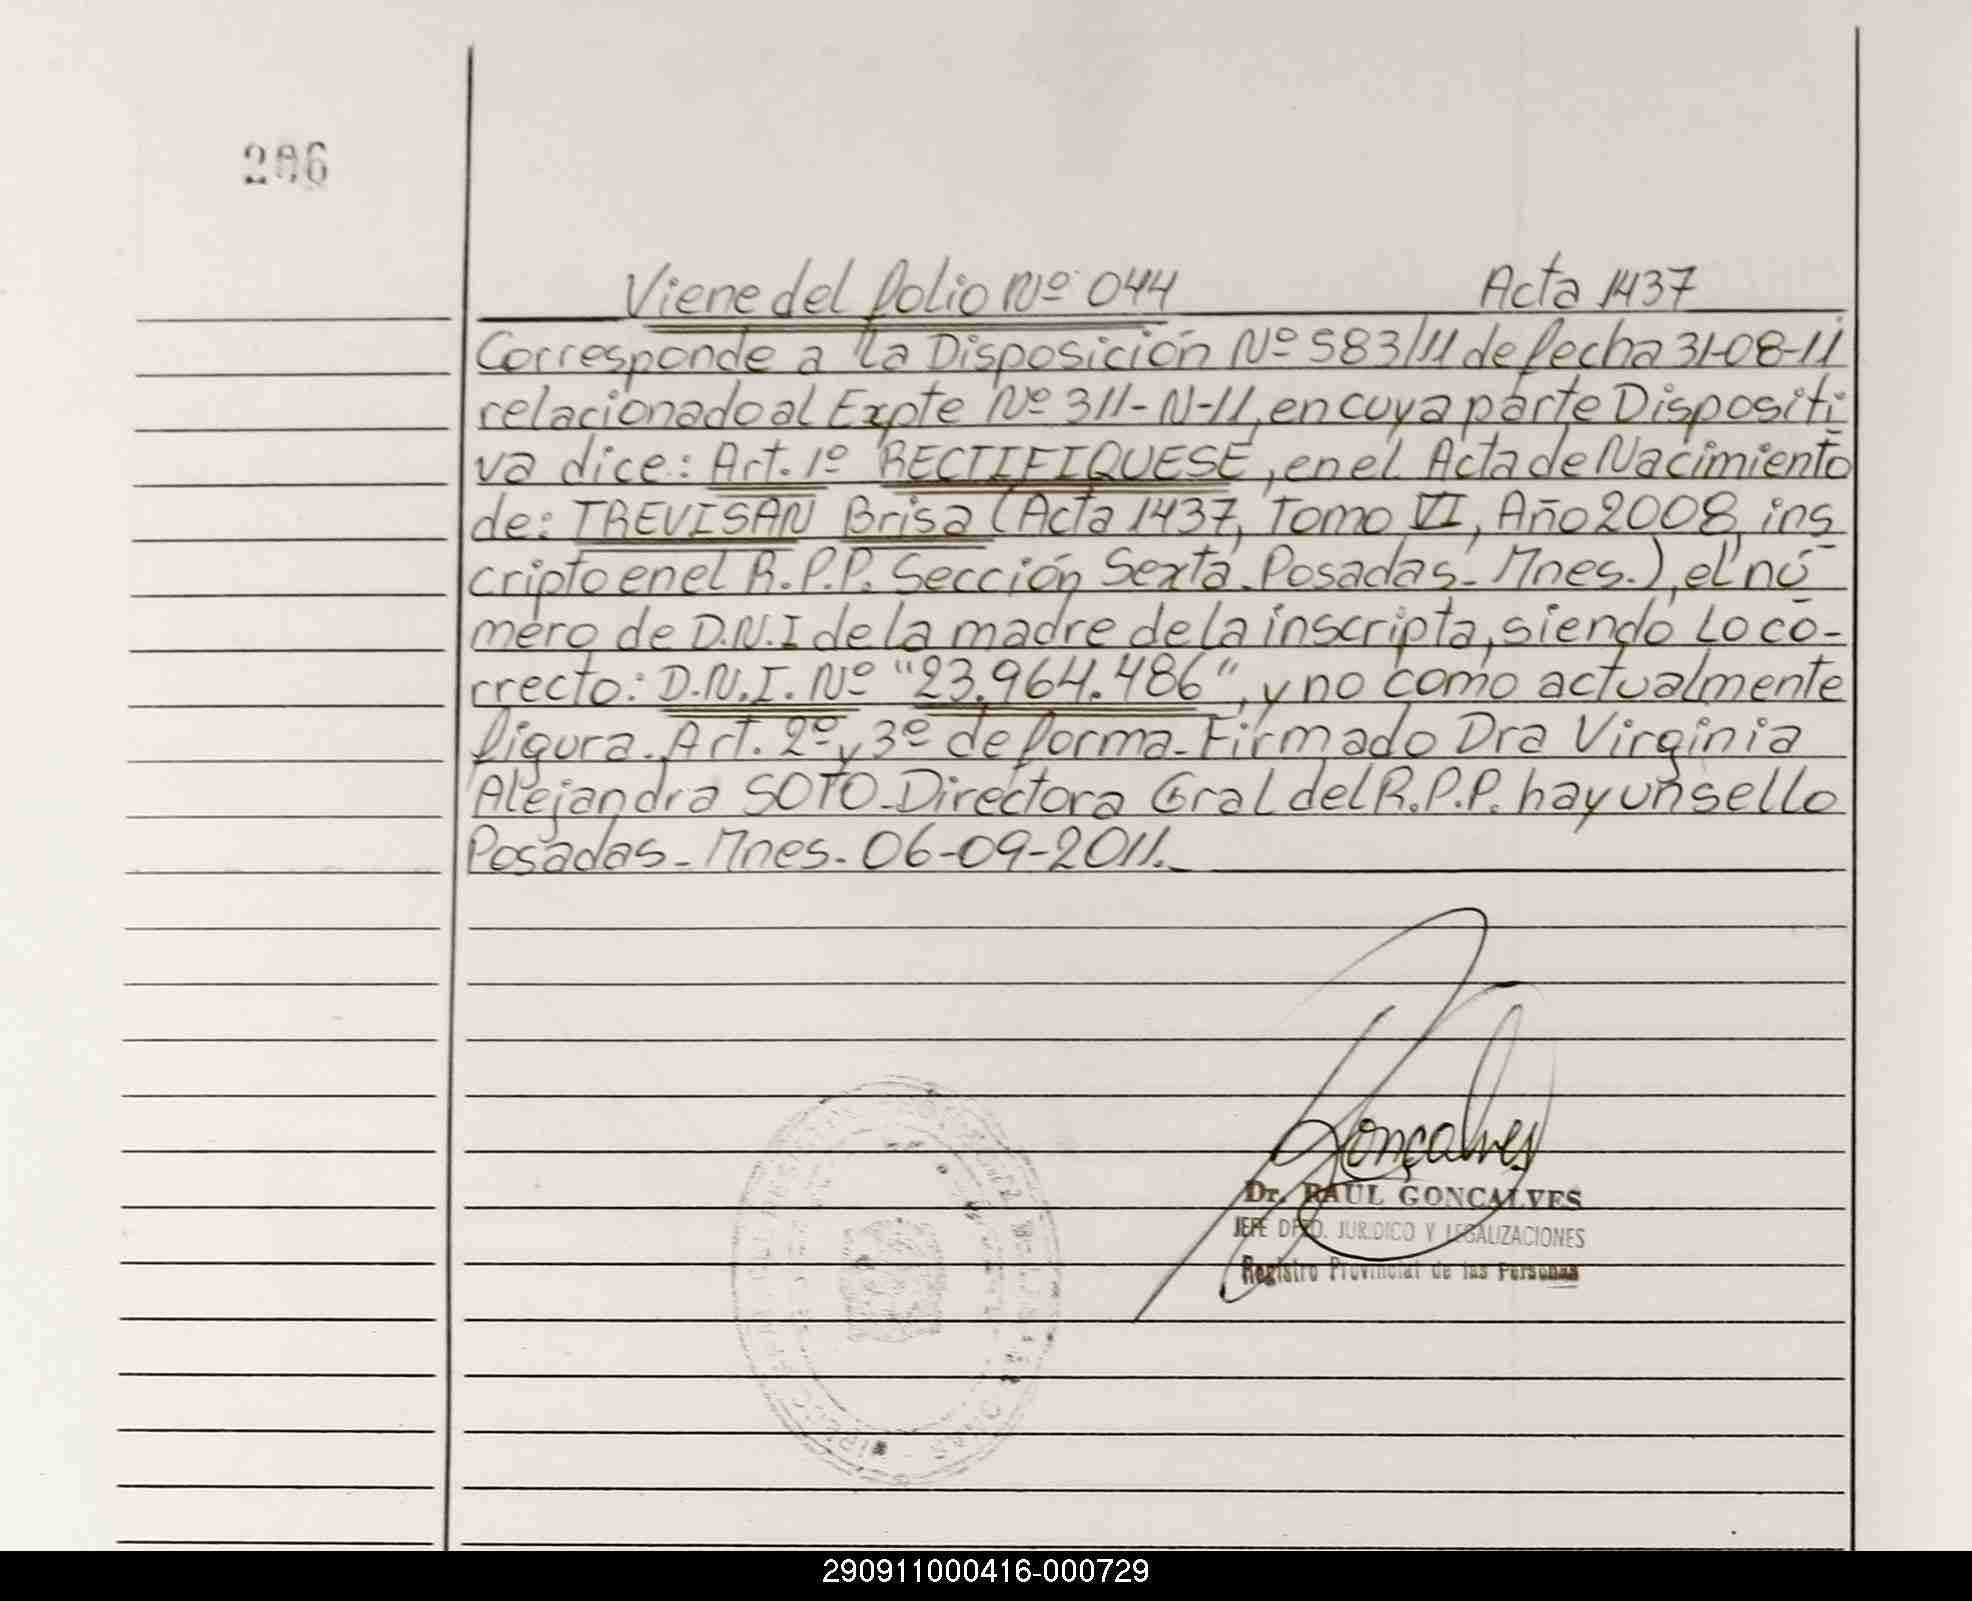 206
Viene del folio Nº 044 Acta 1437
Corresponde a la Disposición Nº 583/11 de fecha 31-08-11
relacionado al Expte Nº 311-N-11, en cuya parte Dispositi
va dice: Art. 1º RECTIFIQUESE, en el Acta de Nacimiento
de: TREVISAN Brisa (Acta 1437, Tomo VI, Año 2008, ins
cripto en el R.P.P. Sección Sexta. Posadas - Mnes.), el nú
mero de D.N.I de la madre de la inscripta, siendo Lo co-
rrecto: D.N.I. Nº "23.964.486", y no como actualmente
figura. Art. 2º y 3º de forma - Firmado Dra Virginia
Alejandra SOTO - Directora Gral del R.P.P. hay un sello
Posadas - Mnes. 06-09-2011.
Gonçalves
Dr. RAUL GONCALVES
JEFE DPTO. JURIDICO Y LEGALIZACIONES
Registro Provincial de las Personas
290911000416-000729